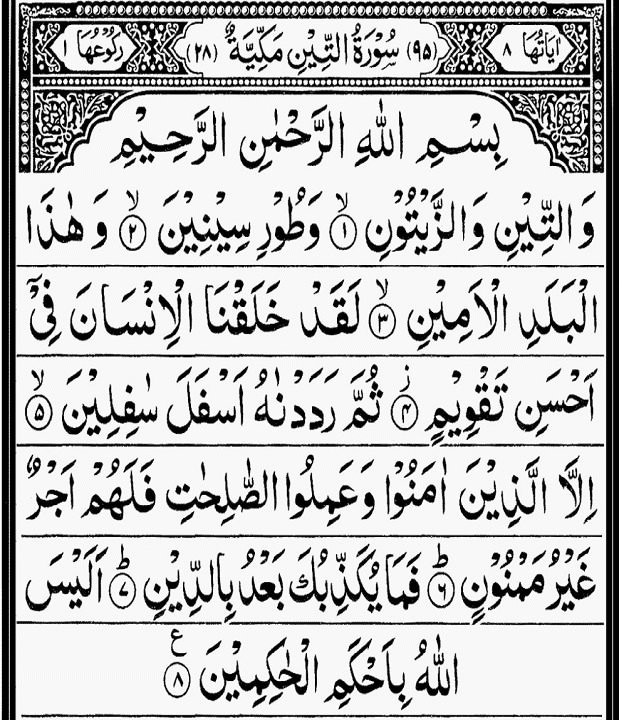 اٰيَاتُهَا ٨ (٩٥) سُوْرَةُ التِّيْنِ مَكِّيَّةٌ (٢٨) رُكُوْعُهَا ١
بِسْمِ اللّٰهِ الرَّحْمٰنِ الرَّحِيْمِ
وَالتِّيْنِ وَالزَّيْتُوْنِ ۙ﴿١﴾ وَطُوْرِ سِيْنِيْنَ ۙ﴿٢﴾ وَهٰذَا
الْبَلَدِ الْاَمِيْنِ ۙ﴿٣﴾ لَقَدْ خَلَقْنَا الْاِنْسَانَ فِيْۤ
اَحْسَنِ تَقْوِيْمٍ ؗ﴿٤﴾ ثُمَّ رَدَدْنٰهُ اَسْفَلَ سٰفِلِيْنَ ۙ﴿٥﴾
اِلَّا الَّذِيْنَ اٰمَنُوْا وَعَمِلُوا الصّٰلِحٰتِ فَلَهُمْ اَجْرٌ
غَيْرُ مَمْنُوْنٍ ؕ﴿٦﴾ فَمَا يُكَذِّبُكَ بَعْدُ بِالدِّيْنِ ؕ﴿٧﴾ اَلَيْسَ
اللّٰهُ بِاَحْكَمِ الْحٰكِمِيْنَ ﴿٨﴾ ع